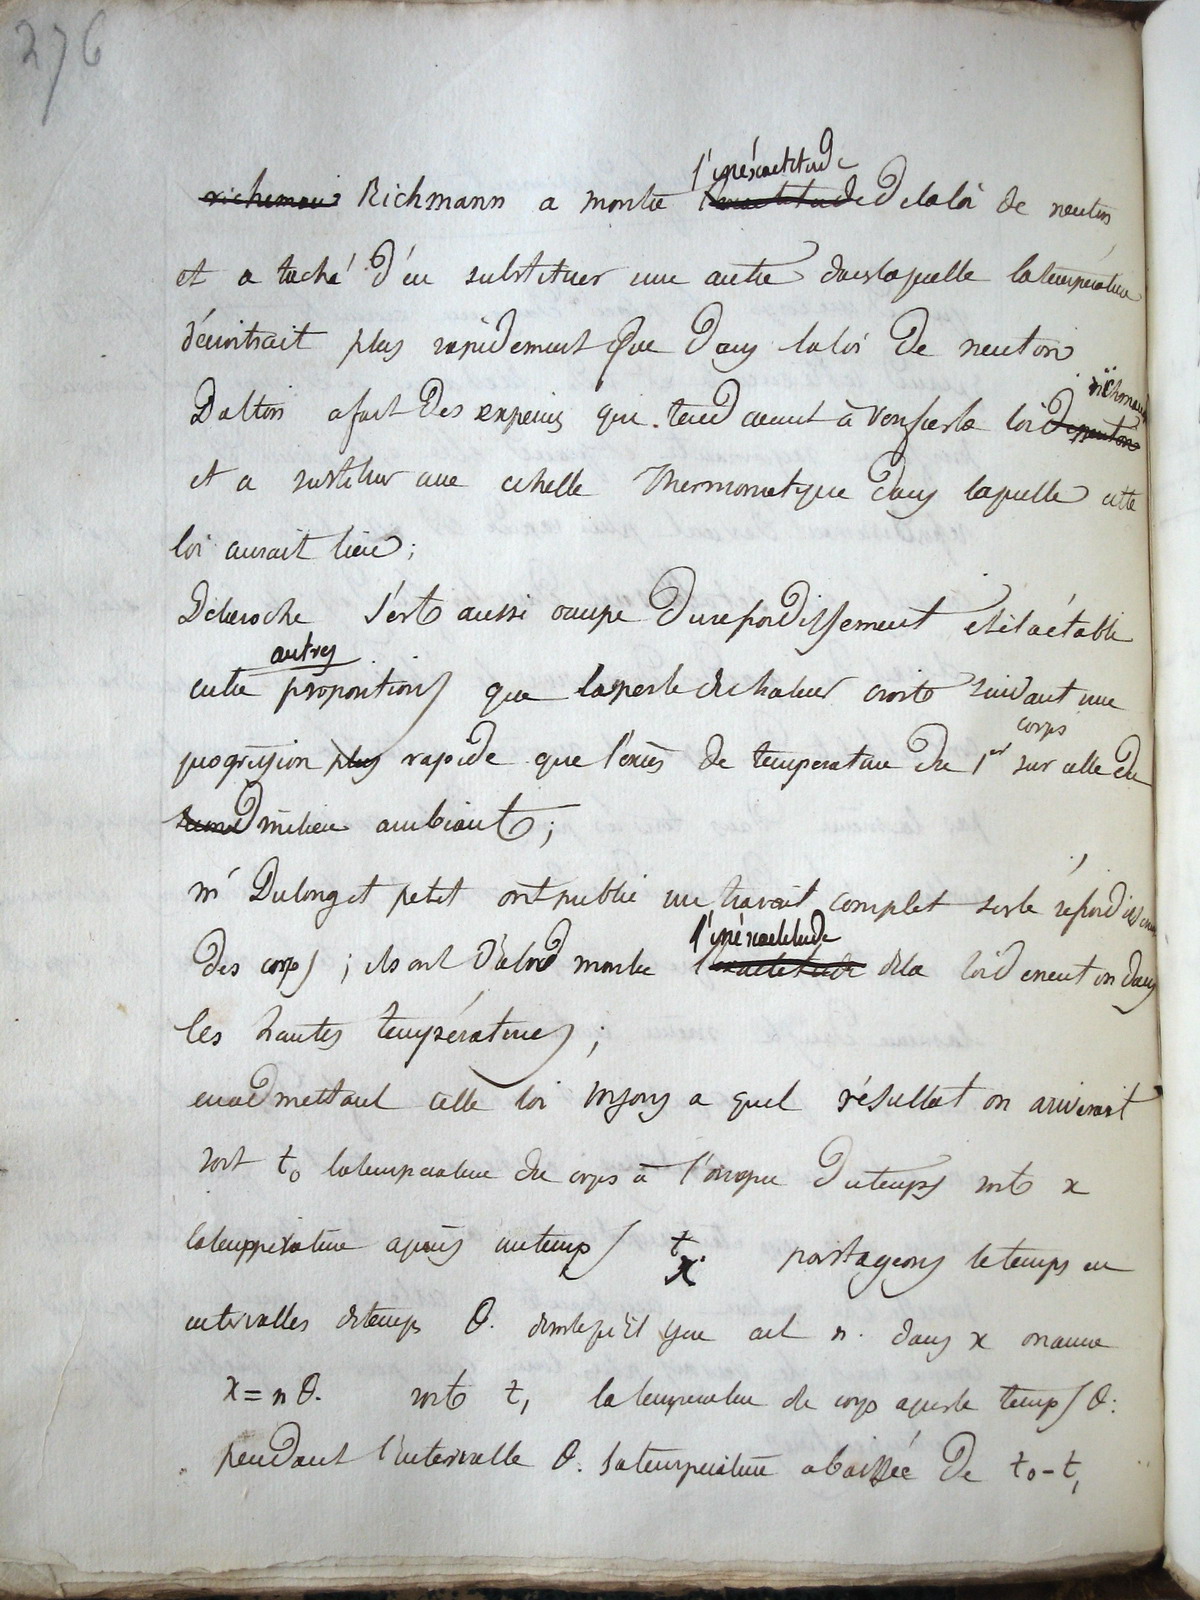 276
l'inéxactitude
richeman Richmann a montré l'exactitude de la loi de neuton
et a taché d'en substituer une autre dans laquelle la température
décroitrait plus rapidement que dans la loi de neuton
richmann
Dalton a fait des expenies qui tend aient à renverser la loi de neuton
et a substituer une echelle thermometrique dans laquelle cette
loi aurait lieu ;
Delaroche s'est aussi occupé du refroidissement et il a établi
autres
entre propositions que la perte de chaleur croit suivant une
corps
progression plus rapide que l'excès de temperature du 1er sur celle du
milieu ambiant ;
mr Dulong et petit ont publié un travail complet sur le réfroidissement
l'inéxactitude
des corps ; ils ont d'abord montré l'exactitude de la loi de neuton dans
les hautes températures ;
en admettant cette loi voyons a quel résultat on arriverait
soit t0 la temperature du corps à l'origine du temps soit x
la température après un temps x t partageons le temps en
intervalles de temps θ. de sorte qu'il y en ait n. dans x on aura
x = n θ. soit t1 la temperature de corps après le temps θ.
pendant l'intervalle θ. la température a baissée de t0 - t1